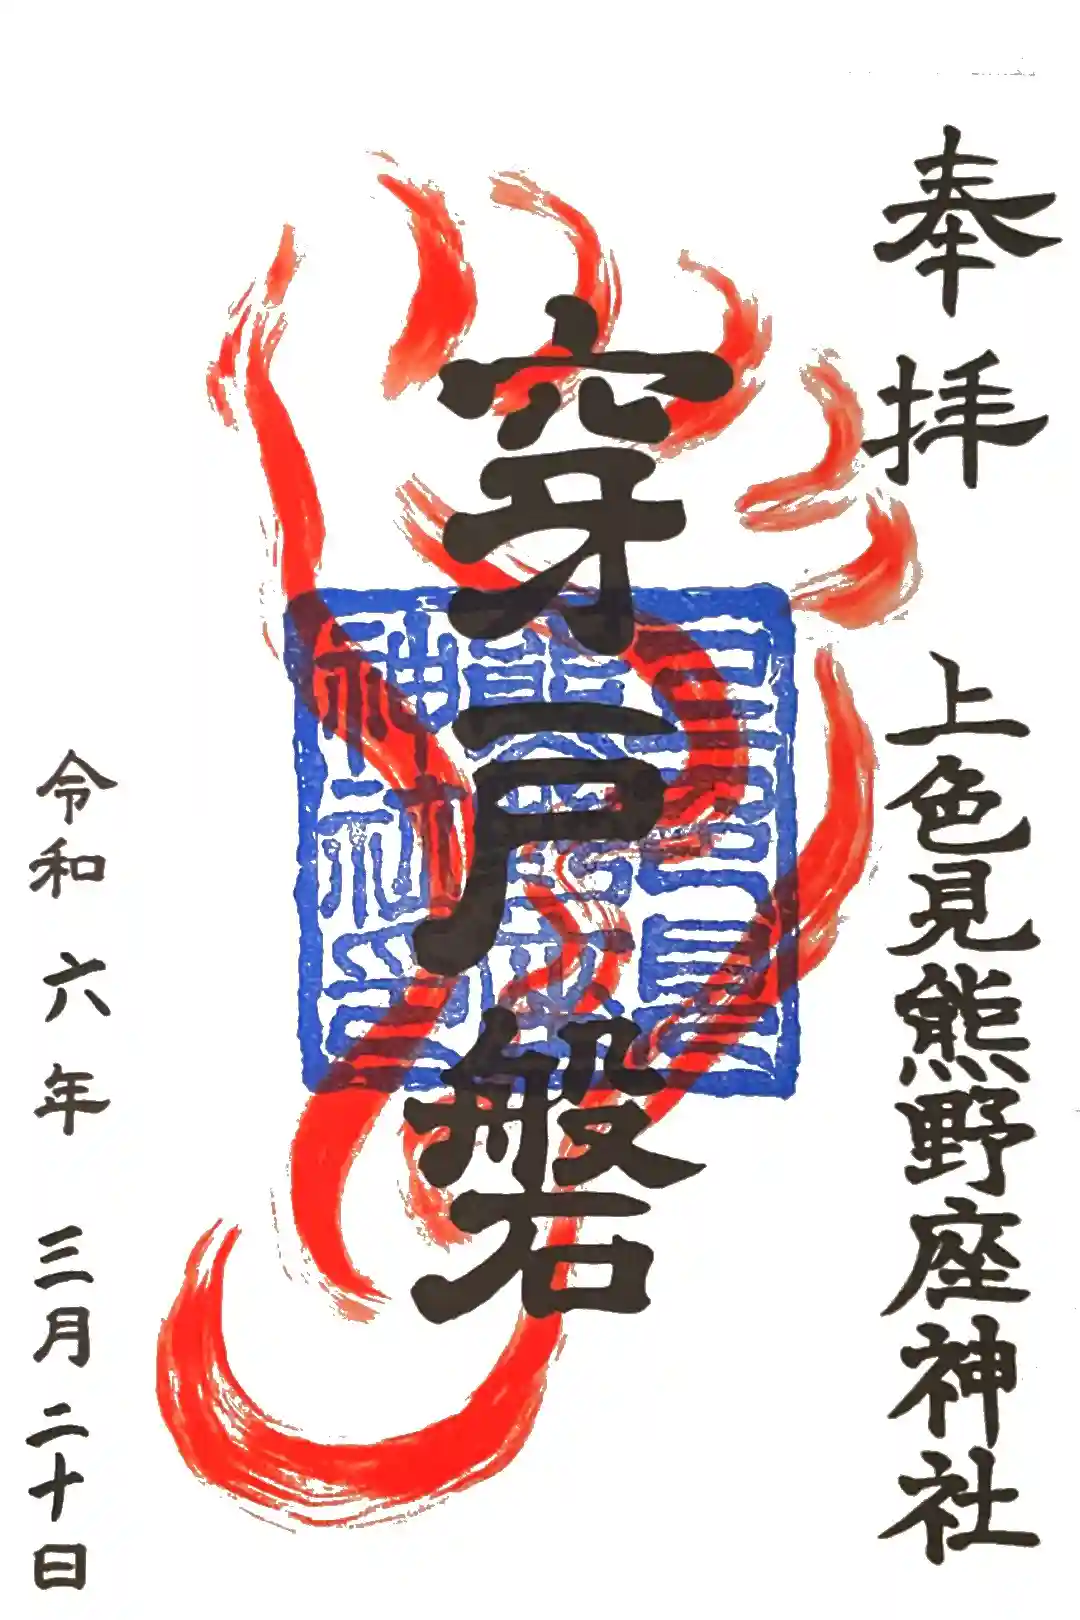 奉拝
上色見熊野座神社
穿戸磐
上色見熊野座神社印
令和六年三月二十日